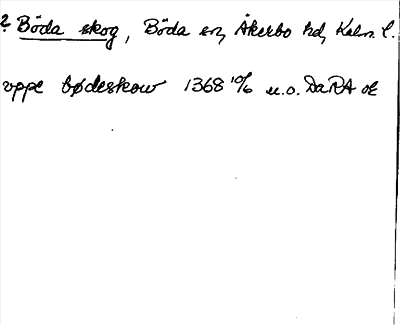 ? Böda skog, Böda sn, Åkerbo hd, Kalm. l.
vppe bødeskow 1368 10/6 u.o. DaRA ok